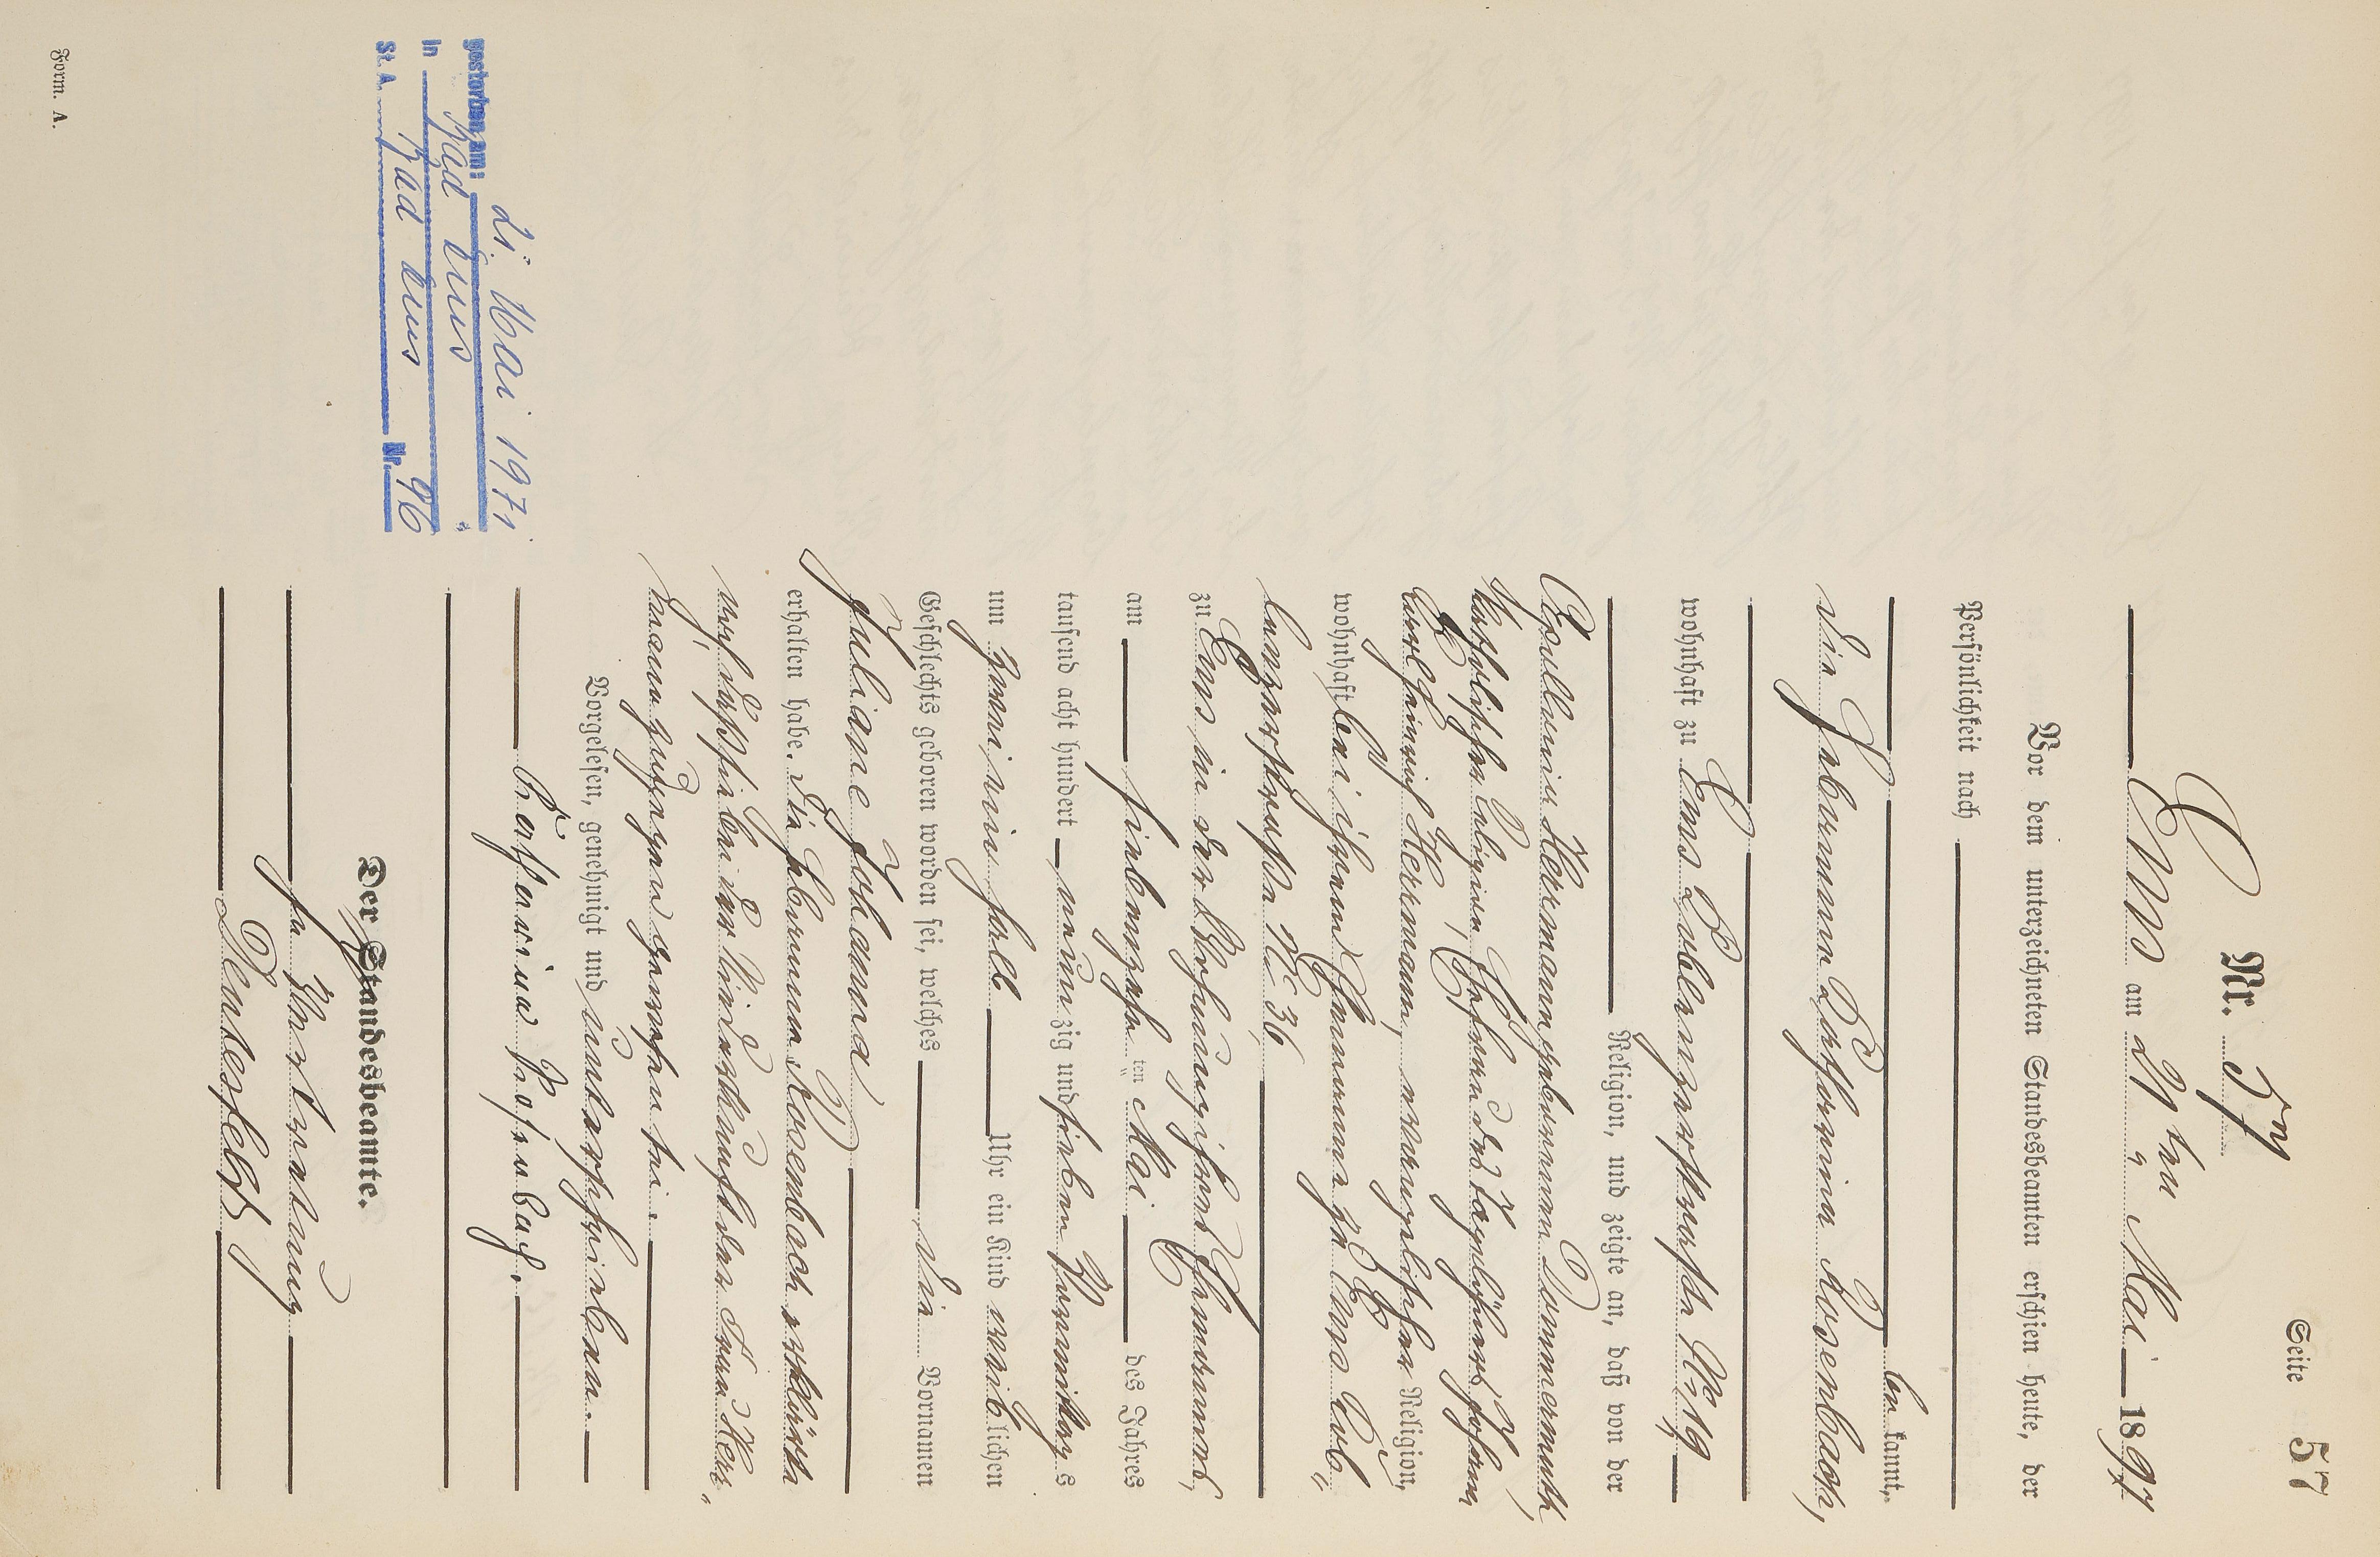 Seite 57
Nr. 57
Ems am 21ten Mai 1897
Vor dem unterzeichneten Standesbeamten erschien heute, der
Persönlichkeit nach
be kannt,
die Hebamme Katharina Rosenbach,
wohnhaft zu Ems Koblenzerstraße No 19
Religion, und zeigte an, daß von der
Apollonia Hermann geborenen Dommermuth,
katholischer Religion, Ehefrau des Tagelöhners Johann
Carl Heinrich Hermann, evangelischer Religion,
wohnhaft bei ihrem Ehemanne zu Ems Cob„
lenzerstraße No 36
zu Ems in der Wohnung ihres Ehemannes,
am siebenzehn ten Mai des Jahres
tausend acht hundert neun zig und sieben Vormittag s
um zwei ein halb Uhr ein Kind weib lichen
Geschlechts geboren worden sei, welches die Vornamen
Juliane Johanna
erhalten habe. Die Hebamme Rosenbach erklärte
noch daß sie bei der Niederkunft der Frau Her„
mann zugegen gewesen sei.
Vorgelesen, genehmigt und unterschrieben.
Katharina Rosenbach.
Der Standesbeamte.
In Vertretung
gestorben am: 21. Mai 1971
in Bad Ems
St. A. Bad Ems Nr. 96
Form. A.